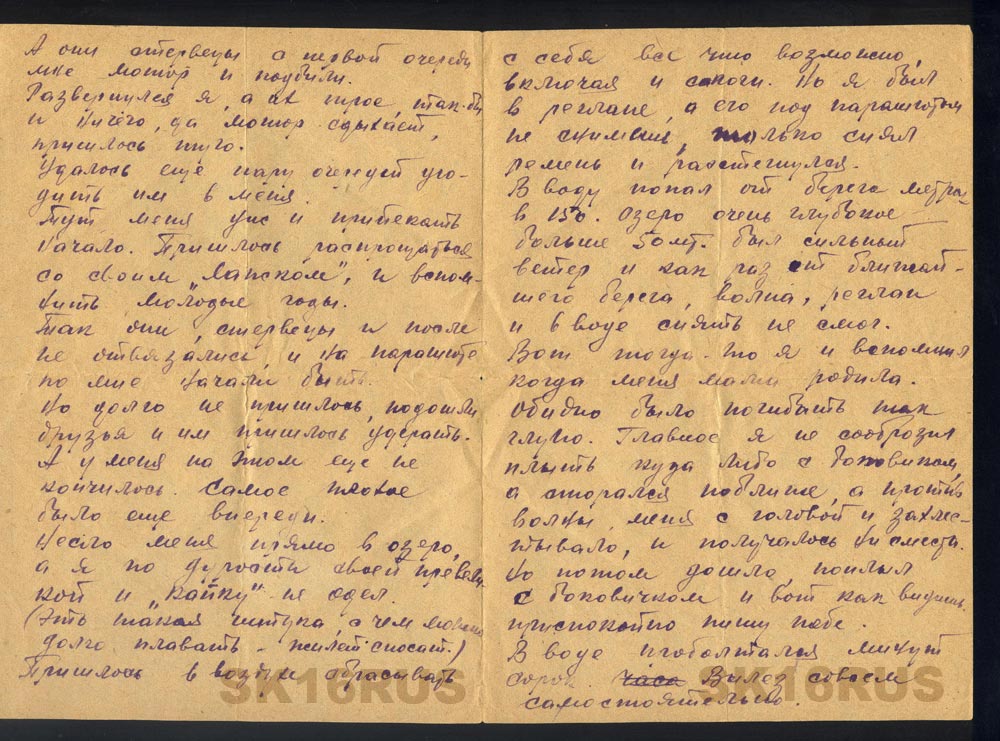 А они стервецы с первой очереди
мне мотор и подбили.
Развернулся я, а их трое, так-бы
и ничего, да мотор сдыхает,
пришлось туго.
Удалось ещё пару очередей уго-
дить им в меня.
Тут меня уже и припекать
начало. Пришлось распрощаться
со своим "Лапском", и вспом-
нить молодые годы.
Так они, стервецы и после
не отвязались, и на парашюте
по мне начали бить.
Но долго не пришлось, подошли
друзья и им пришлось удерать.
А у меня на этом еще не
кончилось. Самое плохое
было еще впереди.
Несло меня прямо в озеро,
а я по дурости своей превели
кой и "капку" не одел.
(Эть такая штука, с чем можно
долго плавать - жилет спосат.)
Пришлось в воздухе сбрасывать
с себя все что возможно,
включая и сапоги. Но я был
в реглане, а его под парашютом
не снимешь, только снял
ремень и расстегнулся.
В воду попал от берега метрах
в 150. Озеро очень глубокое —
больше 50 мт. был сильный
ветер и как раз от ближай-
шего берега, волна, реглан
и в воде снять не смог.
Вот тогда-то я и вспомнил
когда меня мама родила.
Обидно было погибать так
глупо. Главное я не сообразил
плыть куда либо с боковиком,
а старался поближе, а против
волны, меня с головой и захлес-
тывало, и получалось ни сместа.
Но потом дошло поплыл
с боковичком и вот как видишь
приспокойно пишу тебе.
В воде проболтался минут
сорок. часа Вилез совсем
самостоятельно.
SK16RUS SK16RUS